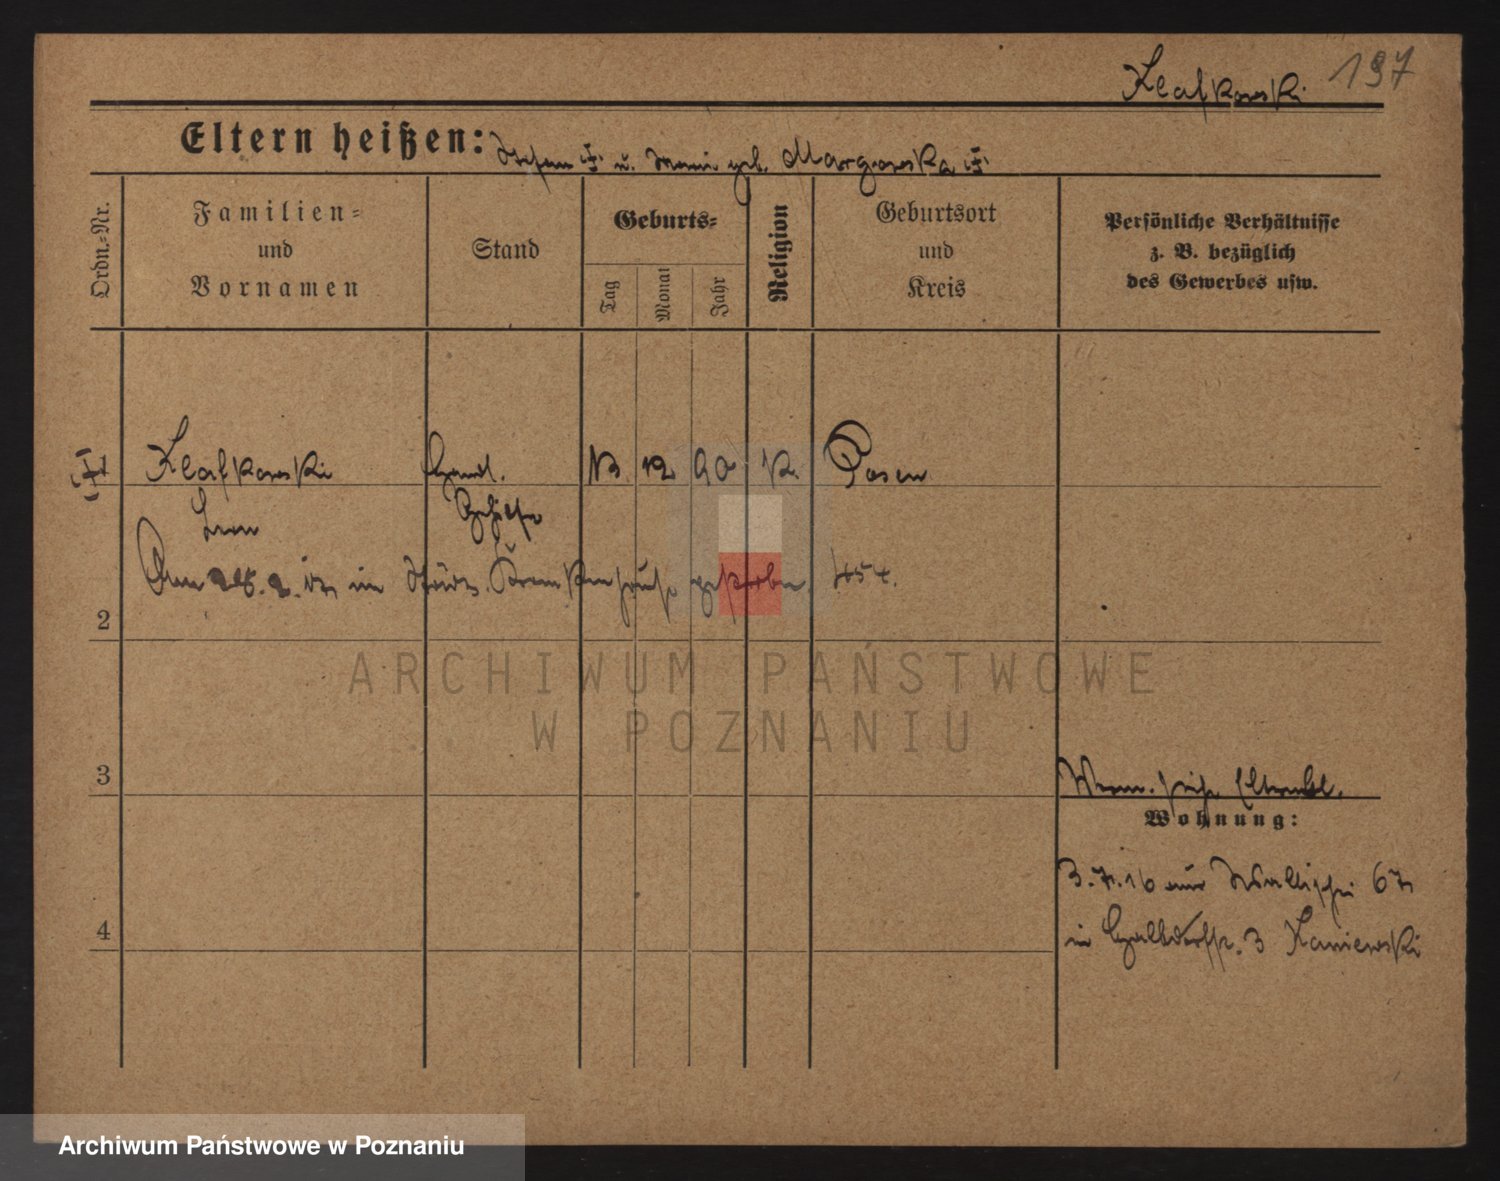 Klafkowski 197
Eltern heißen: Stefan † u. Marie geb. Margowska †
Ordn.-Nr.
Familien-
und
Vornamen
Stand
Geburts-
Tag
Monat
Jahr
Religion
Geburtsort
und
Kreis
Persönliche Verhältnisse
z. B. bezüglich
des Gewerbes usw.
Klafkowski Handl. 12 90 K. Posen
Leon Gehilfe
Am 28. 2. im Städt. Krankenhause gestorben. 454.
2
ARCHIWUM PAŃSTWOWE
W POZNANIU
3
Wohnung:
3.7.16 aus Wallischei 67
4
in 3 Kaniewski
Archiwum Państwowe w Poznaniu